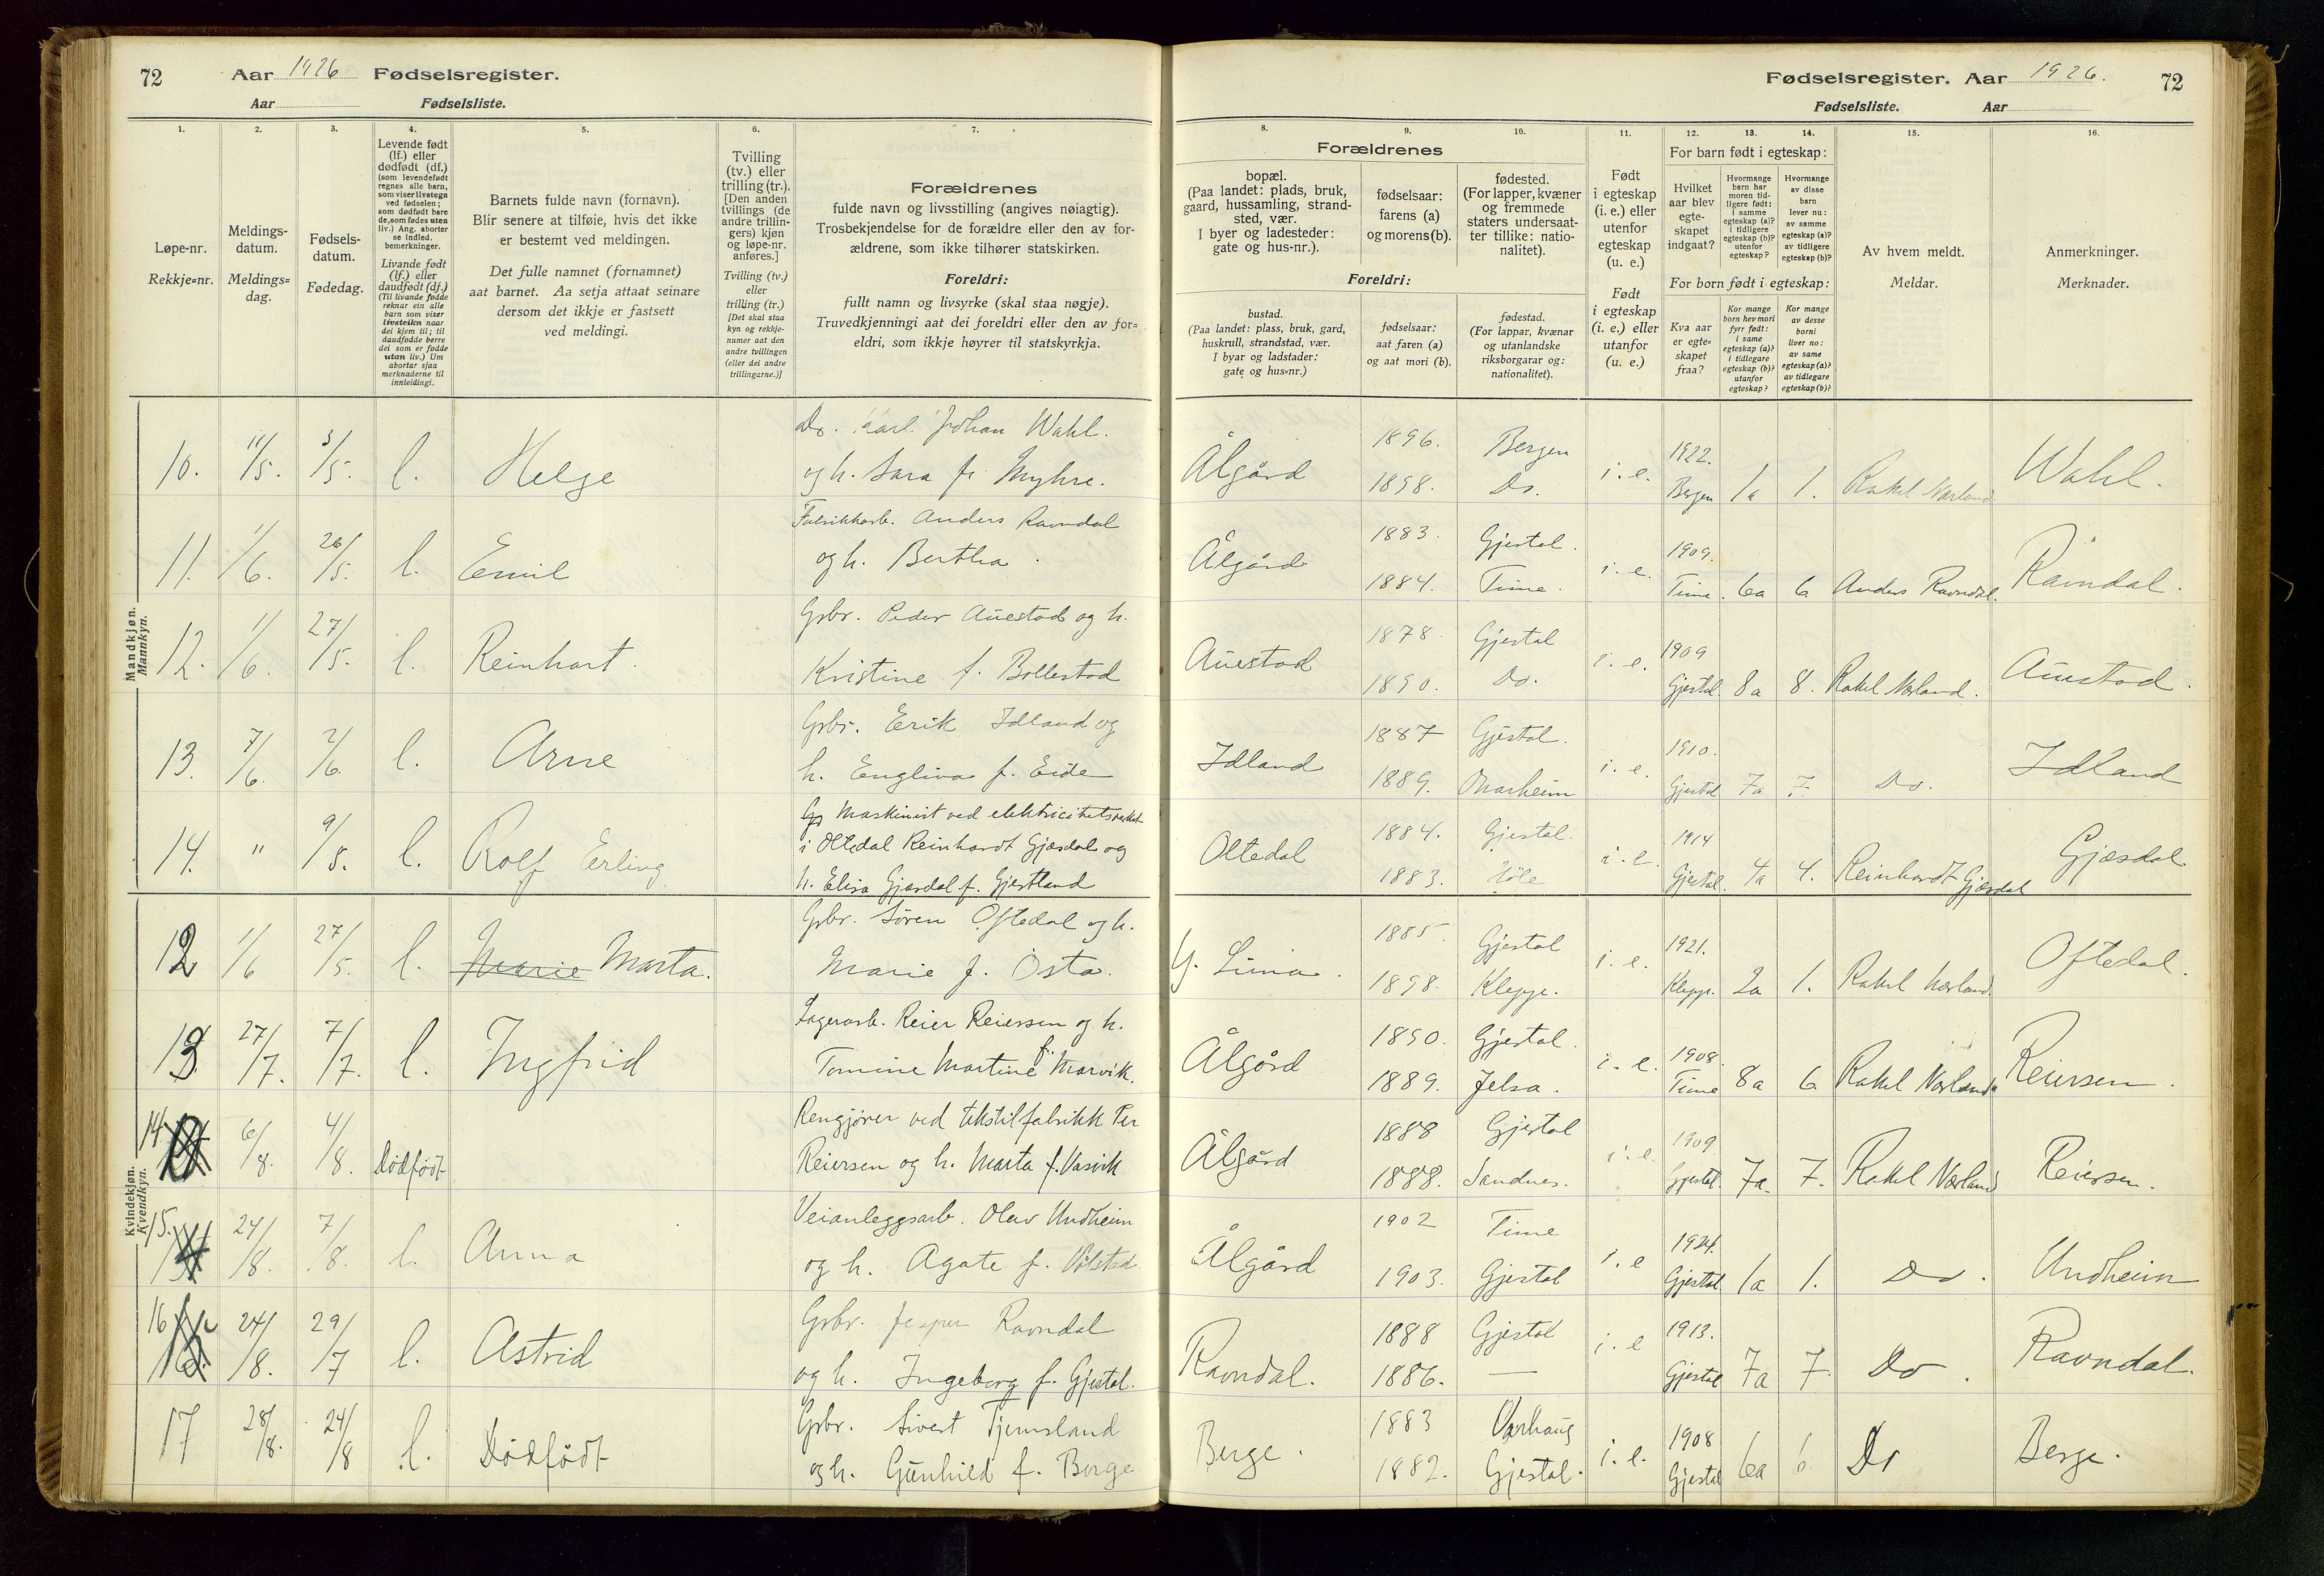 72 Aar 1926 Fødselsregister.
Aar Fødselsliste.
Fødselsregister. Aar 1926. 72
Fødselsliste. Aar
1. 2. 3. 4. 5. 6. 7.
Løpe-nr.
Rekkje-nr.
Meldings-
datum.
Meldings-
dag.
Fødsels-
datum.
Fødedag.
Levende født
(lf.) eller
dødfødt (df.)
(som levendefødt
regnes alle barn,
som viser livstegn
ved fødselen;
som dødfødt bare
de, som fødes uten
liv.) Ang. aborter
se indled.
bemerkninger.
Livande født
(lf.) eller
daudfødt (df.)
(Til livande fødde
reknar ein alle
barn som viser
livsteikn naar
dei kjem til; til
daudfødde berre
dei som er fødde
utan liv.) Um
abortar sjaa
merknaderne til
innleidingi.
Barnets fulde navn (fornavn).
Blir senere at tilføie, hvis det ikke
er bestemt ved meldingen.
Det fulle namnet (fornamnet)
aat barnet. Aa setja attaat seinare
dersom det ikkje er fastsett
ved meldingi.
Tvilling
(tv.) eller
trilling (tr.).
[Den anden
tvillings (de
andre trillin-
gers) kjøn
og løpe-nr.
anføres.]
Tvilling (tv.)
eller
trilling (tr.)
[Det skal staa
kyn og rekkje-
numer aat den
andre tvillingen
(eller dei andre
trillingarne.)]
Forældrenes
fulde navn og livsstilling (angives nøiagtig).
Trosbekjendelse for de forældre eller den av for-
ældrene, som ikke tilhører statskirken.
Foreldri:
fullt namn og livsyrke (skal staa nøgje).
Truvedkjenningi aat dei foreldri eller den av for-
eldri, som ikkje høyrer til statskyrkja.
8. 9. 10. 11. 12. 13. 14. 15. 16.
Forældrenes
bopæl.
(Paa landet: plads, bruk,
gaard, hussamling, strand-
sted, vær.
I byer og ladesteder:
gate og hus-nr.).
fødselsaar:
farens (a)
og morens (b).
fødested.
(For lapper, kvæner
og fremmede
staters undersaat-
ter tillike: natio-
nalitet).
Foreldri:
bustad.
(Paa landet: plass, bruk, gard,
huskrull, strandstad, vær.
I byar og ladstader:
gate og hus-nr.)
fødselsaar:
aat faren (a)
og aat mori (b).
fødestad.
(For lappar, kvænar
og utanlandske
riksborgarar og:
nationalitet).
Født
i egteskap
(i. e.) eller
utenfor
egteskap
(u. e.)
Født
i egteskap
(i. e.) eller
utanfor
(u. e.)
For barn født i egteskap:
Hvilket
aar blev
egte-
skapet
indgaat?
Hvormange
barn har
moren tid-
ligere født:
i samme
egteskap (a)?
i tidligere
egteskap (b)?
utenfor
egteskap?
Hvormange
av disse
barn
lever nu:
av samme
egteskap (a)?
av tidligere
egteskap (b)?
For born født i egteskap:
Kva aar
er egte-
skapet
fraa?
Kor mange
born hev mori
fyrr født:
i same
egteskap (a)?
i tidlegare
egteskap (b)?
utanfor
egteskap?
Kor mange
av desse
borni
liver no:
av same
egteskap (a)?
av tidlegare
egteskap (b)?
Av hvem meldt.
Meldar.
Anmerkninger.
Merknader.
Mandkjøn.
Mannkyn.
10. 11/5. 3/5. l. Helge
Dr. Karl Johan Wahl.
og h. Sara f. Myhre.
Ålgård 1896. Bergen i. e. 1922.
1898. Do. Bergen 1a 1. Rakel Nærland Wahl.
11. 1/6. 26/5. l. Emil
Fabrikkarb. Anders Ravndal
og h. Bertha.
Ålgård 1883. Gjestal. i. e. 1909.
1884. Time. Time. 6a 6 Anders Ravndal. Ravndal.
12. 1/6. 27/5. l. Reinhart.
Grbr. Peder Auestad og h.
Kristine f. Bollestad
Auestad 1878. Gjestal i. e. 1909
1890. Do. Gjestal 8a 8. Rakel Nærland. Auestad.
13. 7/6. 2/6. l. Arne
Grbr. Erik Idland og
h. Engliva f. Eide
Idland 1887 Gjestal. i. e. 1910.
1889. Gjestal 7a 7. Do. Idland
14. " 9/5. l. Rolf Erling
Maskinist ved elektricitetsverket
i Oltedal Reinhardt Gjæsdal og
h. Elisa Gjæsdal f. Gjestland
Oltedal 1884. Gjestal. i. e. 1914
1883. Høle Gjestal. 4a 4. Reinhardt Gjæsdal Gjæsdal
Kvindekjøn.
Kvendkyn.
12 1/6 27/5. l. Marie Marta.
Grbr. Søren Oftedal og h.
Marie f. Østa.
1885. Gjestal i. e. 1921.
1898. Kleppe. Klepp. 2a 1. Rakel Nærland. Oftedal.
13. 27/7. 7/7. l. Ingfrid
Lagerarb. Reier Reiersen og h.
Tomine Martine f. Marvik.
Ålgård 1890. Gjestal. i. e. 1908.
1889. Jelsa. Time 8a 6 Rakel Nærland Reiersen.
14 6/8. 4/8. Dødfødt
Rengjører ved tekstilfabrikk Per
Reiersen og h. Marta f. Vasvik
Ålgård 1888 Gjestal i. e. 1909
1888. Sandnes. Gjestal. 7a. 7. Rakel Nærland Reiersen.
15. 24/8. 7/8. l. Anna
Veianleggsarb. Olav Undheim
og h. Agate f. Ølstad
Ålgård 1902 Time i. e 1924.
1903. Gjestal Gjestal 1a 1. Do. Undheim
16 24/8. 29/7 l. Astrid
Grbr. Jesper Ravndal
og h. Ingeborg f. Gjestal.
Ravndal. 1888 Gjestal i. e 1913.
1886. — Gjestal 7a 7 Do. Ravndal.
17 28/8. 24/8 l. Dødfødt
Grbr. Sivert Tjemsland
og h. Gunhild f. Berge
Berge. 1883 Varhaug i. e. 1908
1882. Gjestal. Gjestal 6a 6. Do Berge.